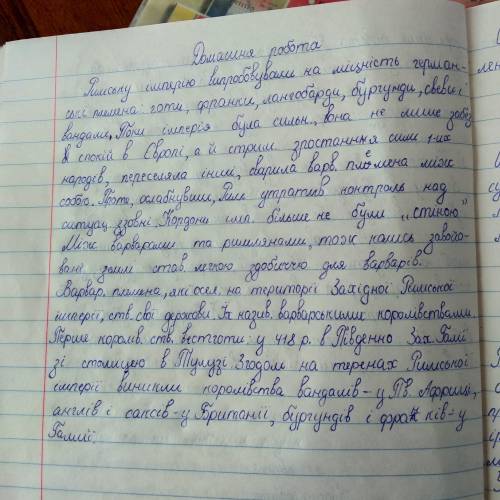 Домашня робота
Римську імперію випробовували на міцність герман-
ські племена: готи, франки, лангобарди, бургунди, свеви і
вандали. Поки імперія була сильн., вона не лише забез.
спокій в Європі, а й стрим. зростання сили
народів, переселяла інші, сварила варв. племена між
собою. Проте, ослабнувши, Рим утратив контроль над
ситуац. ззовні. Кордони імп. більше не були „стіною"
між варварами та римлянами, тож колись завойо-
вані землі став. легкою здобиччю для варварів.
Варвар. племена, які осел. на території Західної Римської
імперії, ств. свої держави. Їх назив. варварськими королівствами.
Перше королів. ств. вестготи: у 418 р. в Південно Зах. Галії
зі столицею в Тулузі. Згодом на теренах Римської
імперії виникли королівства вандалів - у Пв. Африці,
англів і саксів - у Британії, бургундів і франків - у
Галлії.